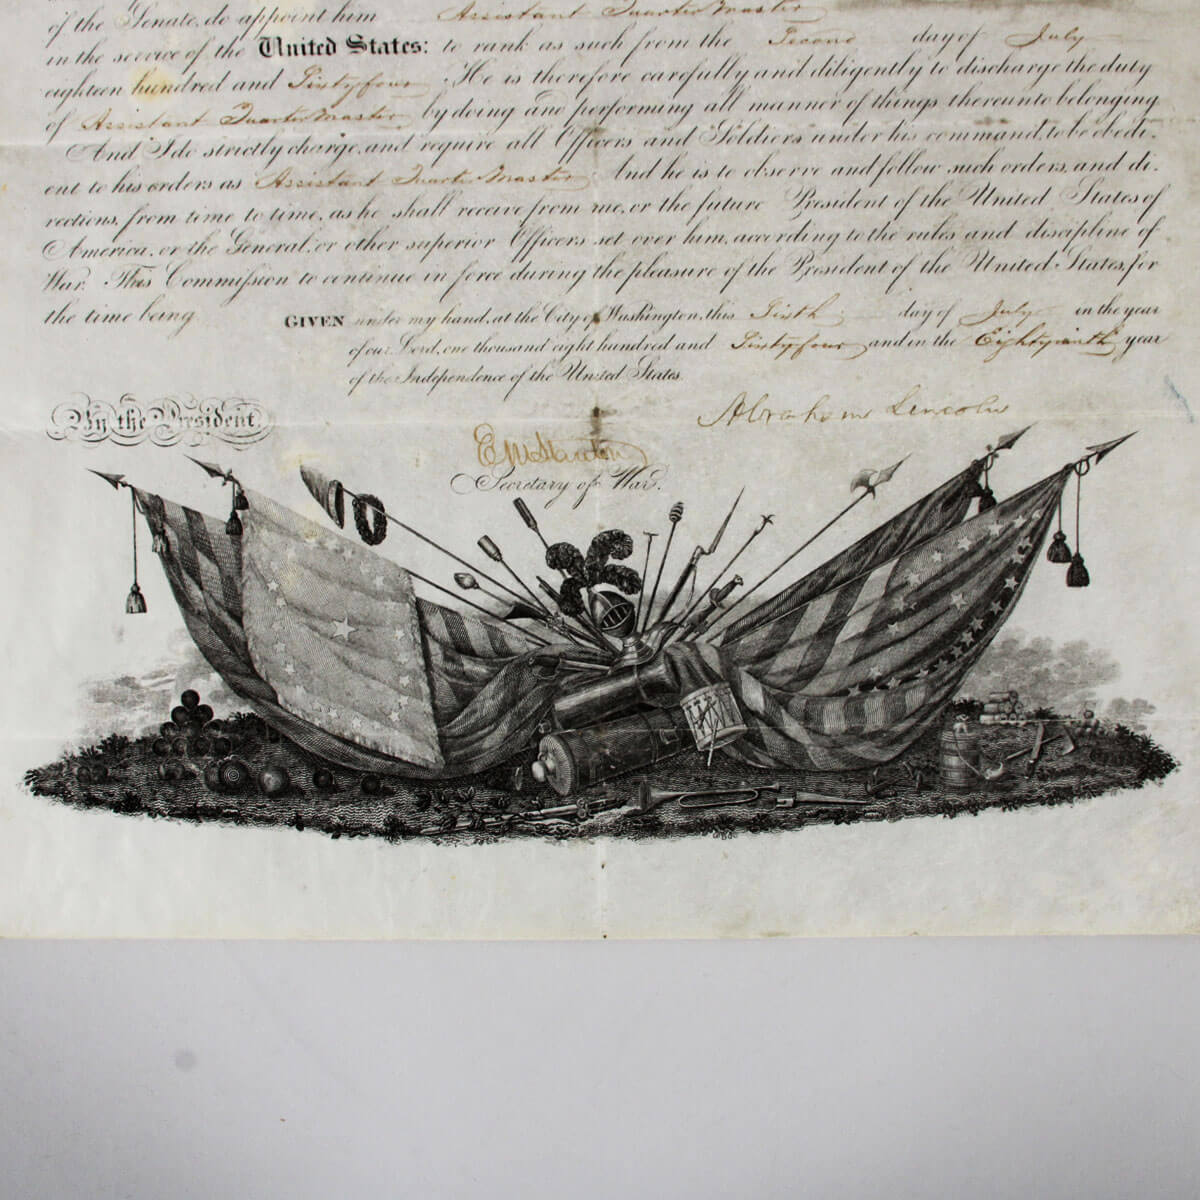 of the Senate, do appoint him Assistant Quarter Master
in the service of the United States: to rank as such from the Second day of July
eighteen hundred and Sixty four. He is therefore carefully and diligently to discharge the duty
of Assistant Quarter Master by doing and performing all manner of things thereunto belonging.
And I do strictly charge, and require all Officers and Soldiers under his command, to be obedi-
ent to his orders as Assistant Quarter Master. And he is to observe and follow such orders, and di-
rections, from time to time, as he shall receive from me, or the future President of the United States of
America, or the General, or other superior Officers set over him, according to the rules and discipline of
War. This Commission to continue in force during the pleasure of the President of the United States, for
the time being.
GIVEN under my hand, at the City of Washington, this Sixth day of July in the year
of our Lord, one thousand eight hundred and Sixty four and in the Eighty ninth year
of the Independence of the United States.
By the President,
Abraham Lincoln
E M Stanton
Secretary of War.